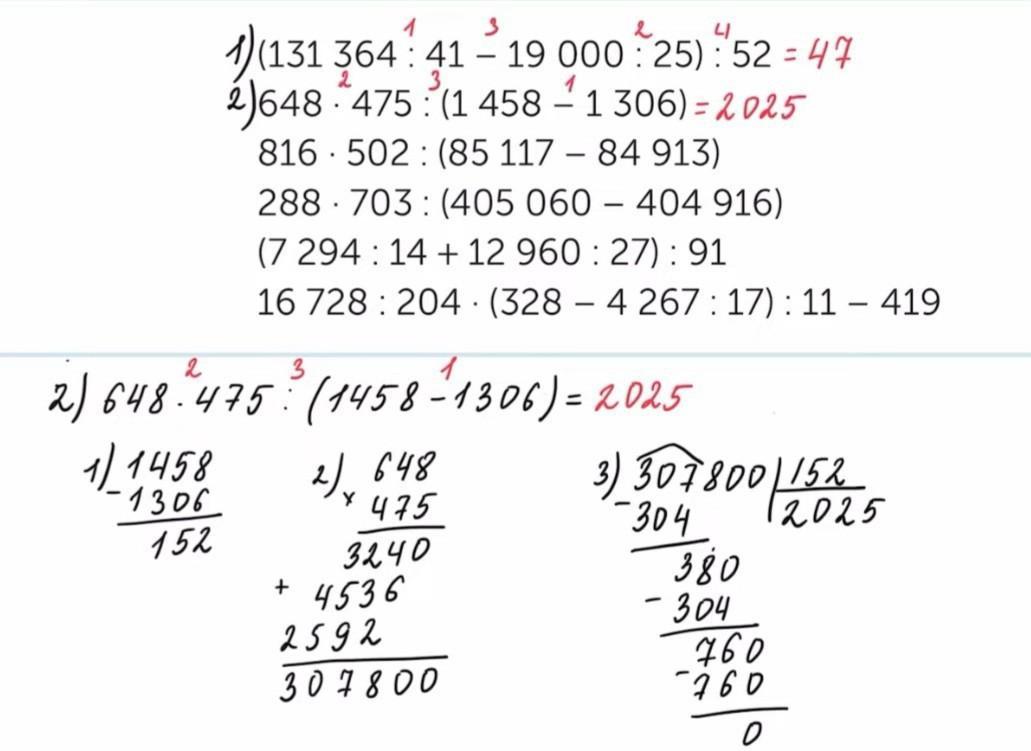 1) (131 364 : 41 – 19 000 : 25) : 52 = 47
1 3 2 4
2) 648 · 475 : (1 458 – 1 306) = 2025
2 3 1
816 · 502 : (85 117 – 84 913)
288 · 703 : (405 060 – 404 916)
(7 294 : 14 + 12 960 : 27) : 91
16 728 : 204 · (328 – 4 267 : 17) : 11 – 419
2 3 1
2) 648 · 475 : (1458 – 1306) = 2025
1) 1458
– 1306
152
2) 648
× 475
3240
+ 4536
2592
307800
3) 307800 | 152
– 304 | 2025
380
– 304
760
– 760
0